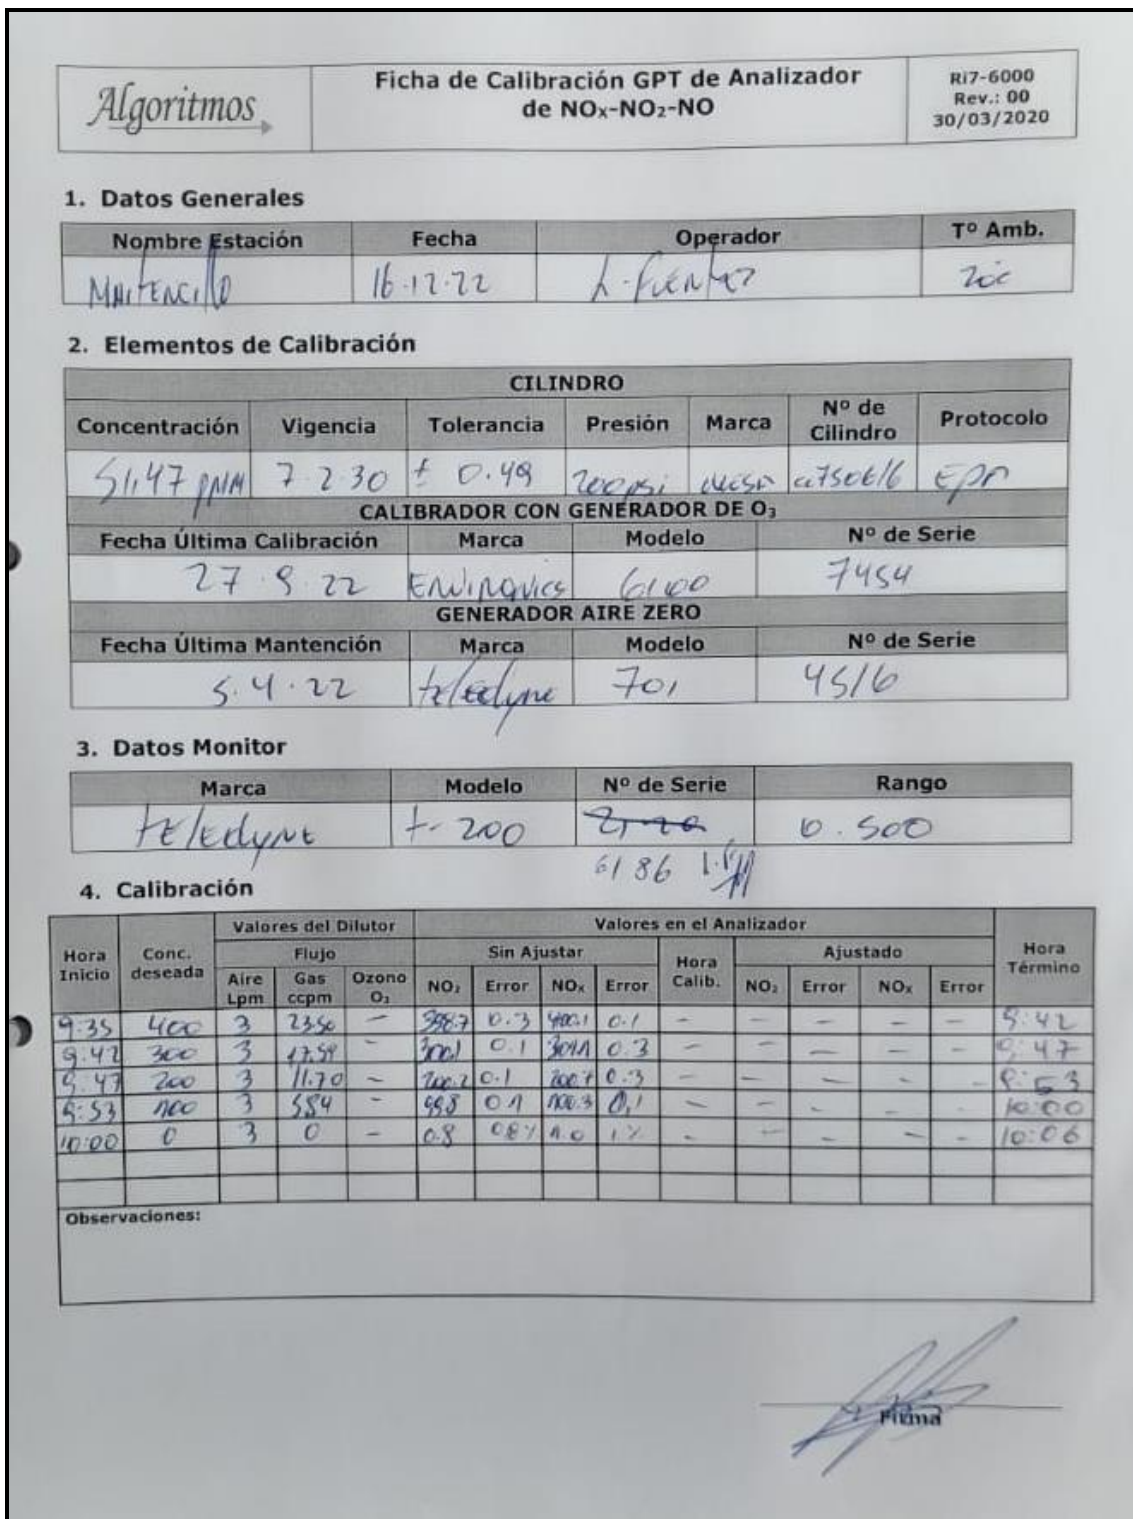 Algoritmos
Ficha de Calibración GPT de Analizador
de NOx-NO₂-NO
Ri7-6000
Rev.: 00
30/03/2020
1. Datos Generales
Nombre Estación Fecha Operador Tº Amb.
MAITENCILLO 16.12.22 L. FUENTES
2. Elementos de Calibración
CILINDRO
Concentración Vigencia Tolerancia Presión Marca Nº de Cilindro Protocolo
51,47 PPM 7.2.30 ± 0.49 200 psi EPA
CALIBRADOR CON GENERADOR DE O₃
Fecha Última Calibración Marca Modelo Nº de Serie
27.9.22 ENVIRONICS 6100 7454
GENERADOR AIRE ZERO
Fecha Última Mantención Marca Modelo Nº de Serie
5.4.22 teledyne 701 4516
3. Datos Monitor
Marca Modelo Nº de Serie Rango
tELEdyNE t-200 0.500
6186
4. Calibración
Hora Inicio Conc. deseada Valores del Dilutor Valores en el Analizador Hora Término
Flujo Sin Ajustar Hora Calib. Ajustado
Aire Lpm Gas ccpm Ozono O₃ NO₂ Error NOx Error NO₂ Error NOx Error
9:35 400 3 23.50 – 398.7 0.3 400.1 0.1 – – – – – 9:42
9:42 300 3 17.59 – 300.1 0.1 301.1 0.3 – – – – – 9:47
9:47 200 3 11.70 – 200.2 0.1 200.7 0.3 – – – – – 9:53
9:53 100 3 5.84 – 99.8 0.1 100.3 0,1 – – – – – 10:00
10:00 0 3 0 – 0.8 0.8% 1.0 1% – – – – – 10:06
Observaciones:
Firma